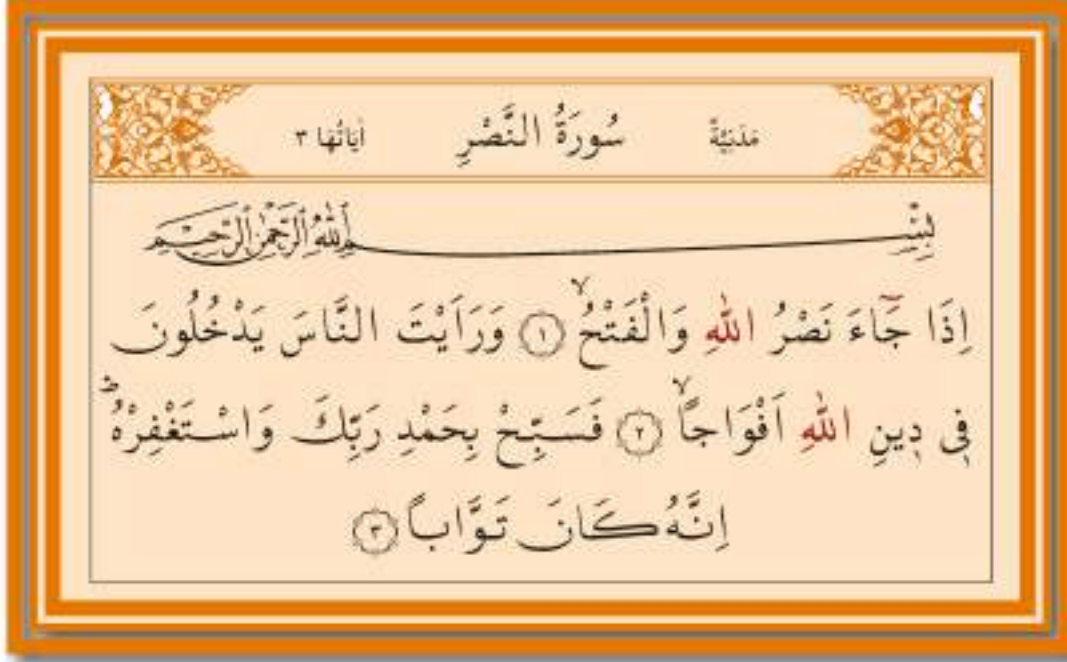 مَدَنِيَّةٌ سُورَةُ النَّصْرِ اٰيَاتُهَا ٣
بِسْمِ اللّٰهِ الرَّحْمٰنِ الرَّحِيمِ
اِذَا جَٓاءَ نَصْرُ اللّٰهِ وَالْفَتْحُۙ ﴿١﴾ وَرَاَيْتَ النَّاسَ يَدْخُلُونَ
ف۪ي د۪ينِ اللّٰهِ اَفْوَاجاًۙ ﴿٢﴾ فَسَبِّحْ بِحَمْدِ رَبِّكَ وَاسْتَغْفِرْهُۜ
اِنَّهُ كَانَ تَوَّاباً ﴿٣﴾